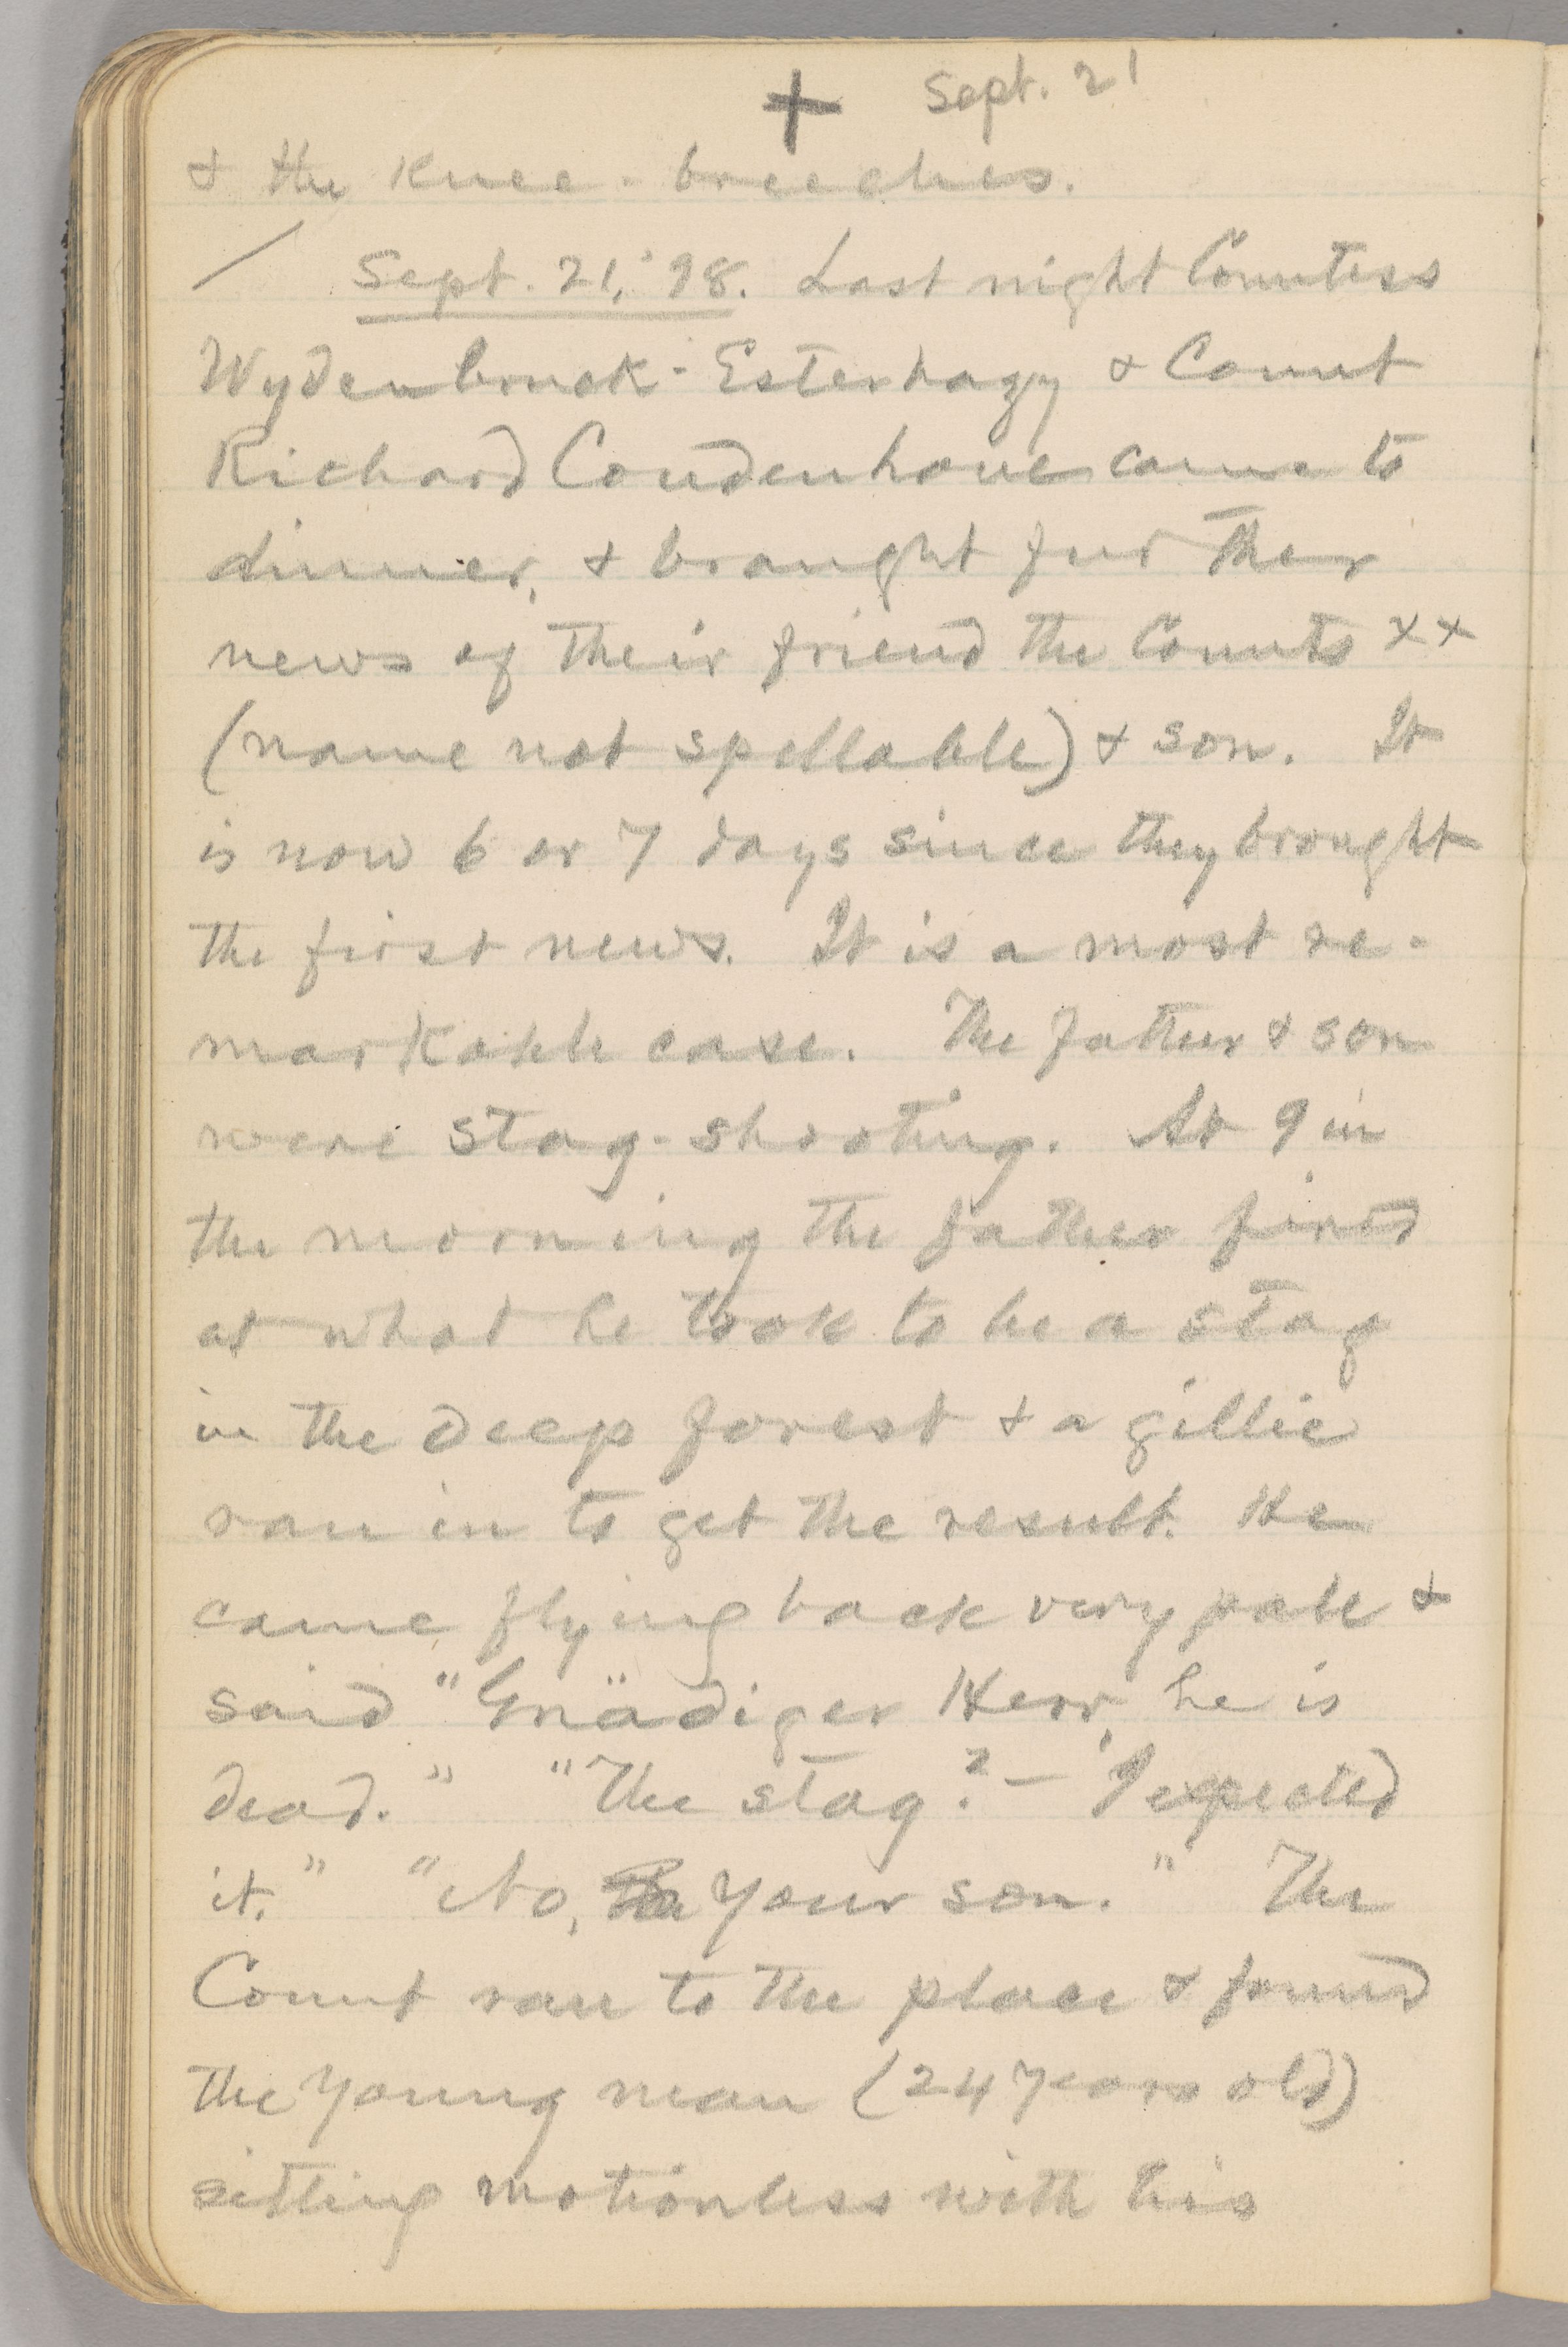 + Sept. 21
& the knee-breeches.
/ Sept. 21, '98. Last night Countess
Wydenbruck-Esterhazy & Count
Richard Coudenhove came to
dinner, & brought further
news of their friend the Counts xx
(name not spellable) & son. It
is now 6 or 7 days since they brought
the first news. It is a most re-
markable case. The father & son
were stag-shooting. At 9 in
the morning the father fired
at what he took to be a stag
in the deep forest & a gillie
ran in to get the result. He
came flying back very pale &
said "Gnädiger Herr, he is
dead." "The stag? — I expected
it." "No, your son." The
Count ran to the place & found
the young man (24 years old)
sitting motionless with his